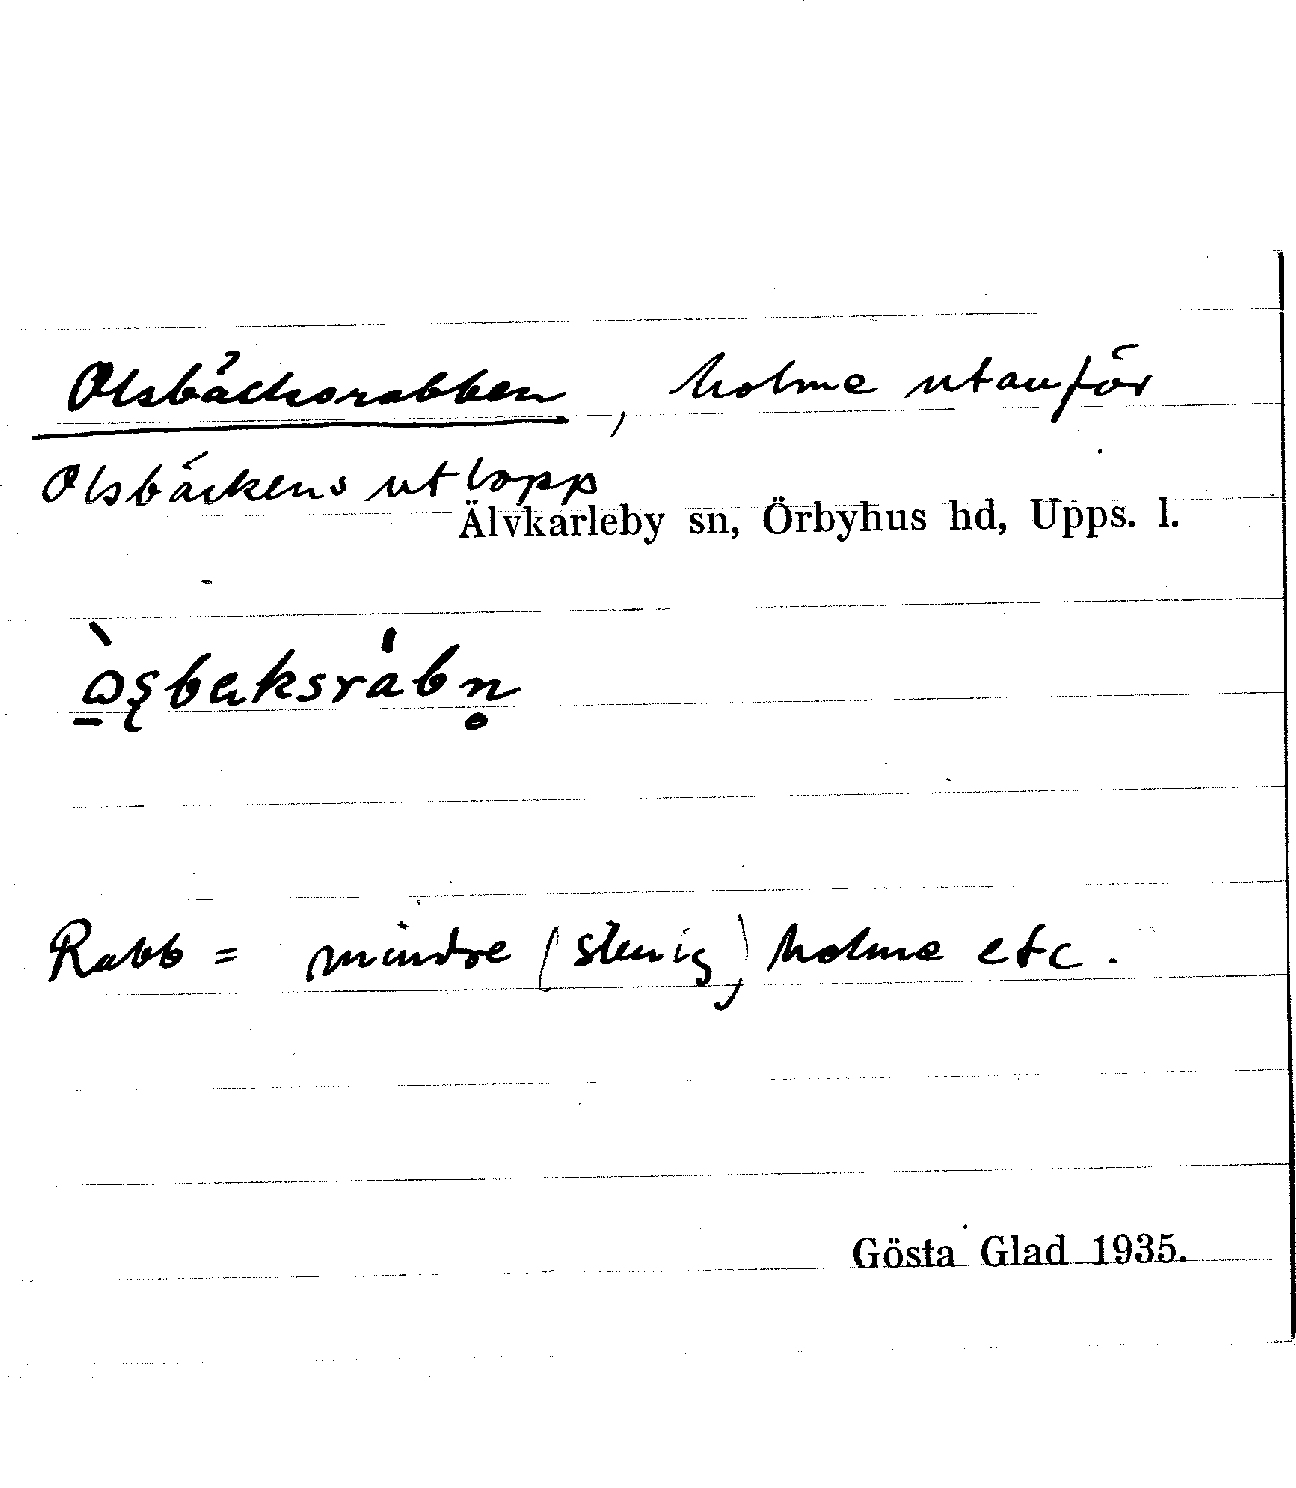 Olsbäcksrabben, holme utanför
Olsbäckens utlopp
Älvkarleby sn, Örbyhus hd, Upps. l.
ò̱ʂbɑksràbn̥
Rabb = mindre (stenig) holme etc.
Gösta Glad 1935.